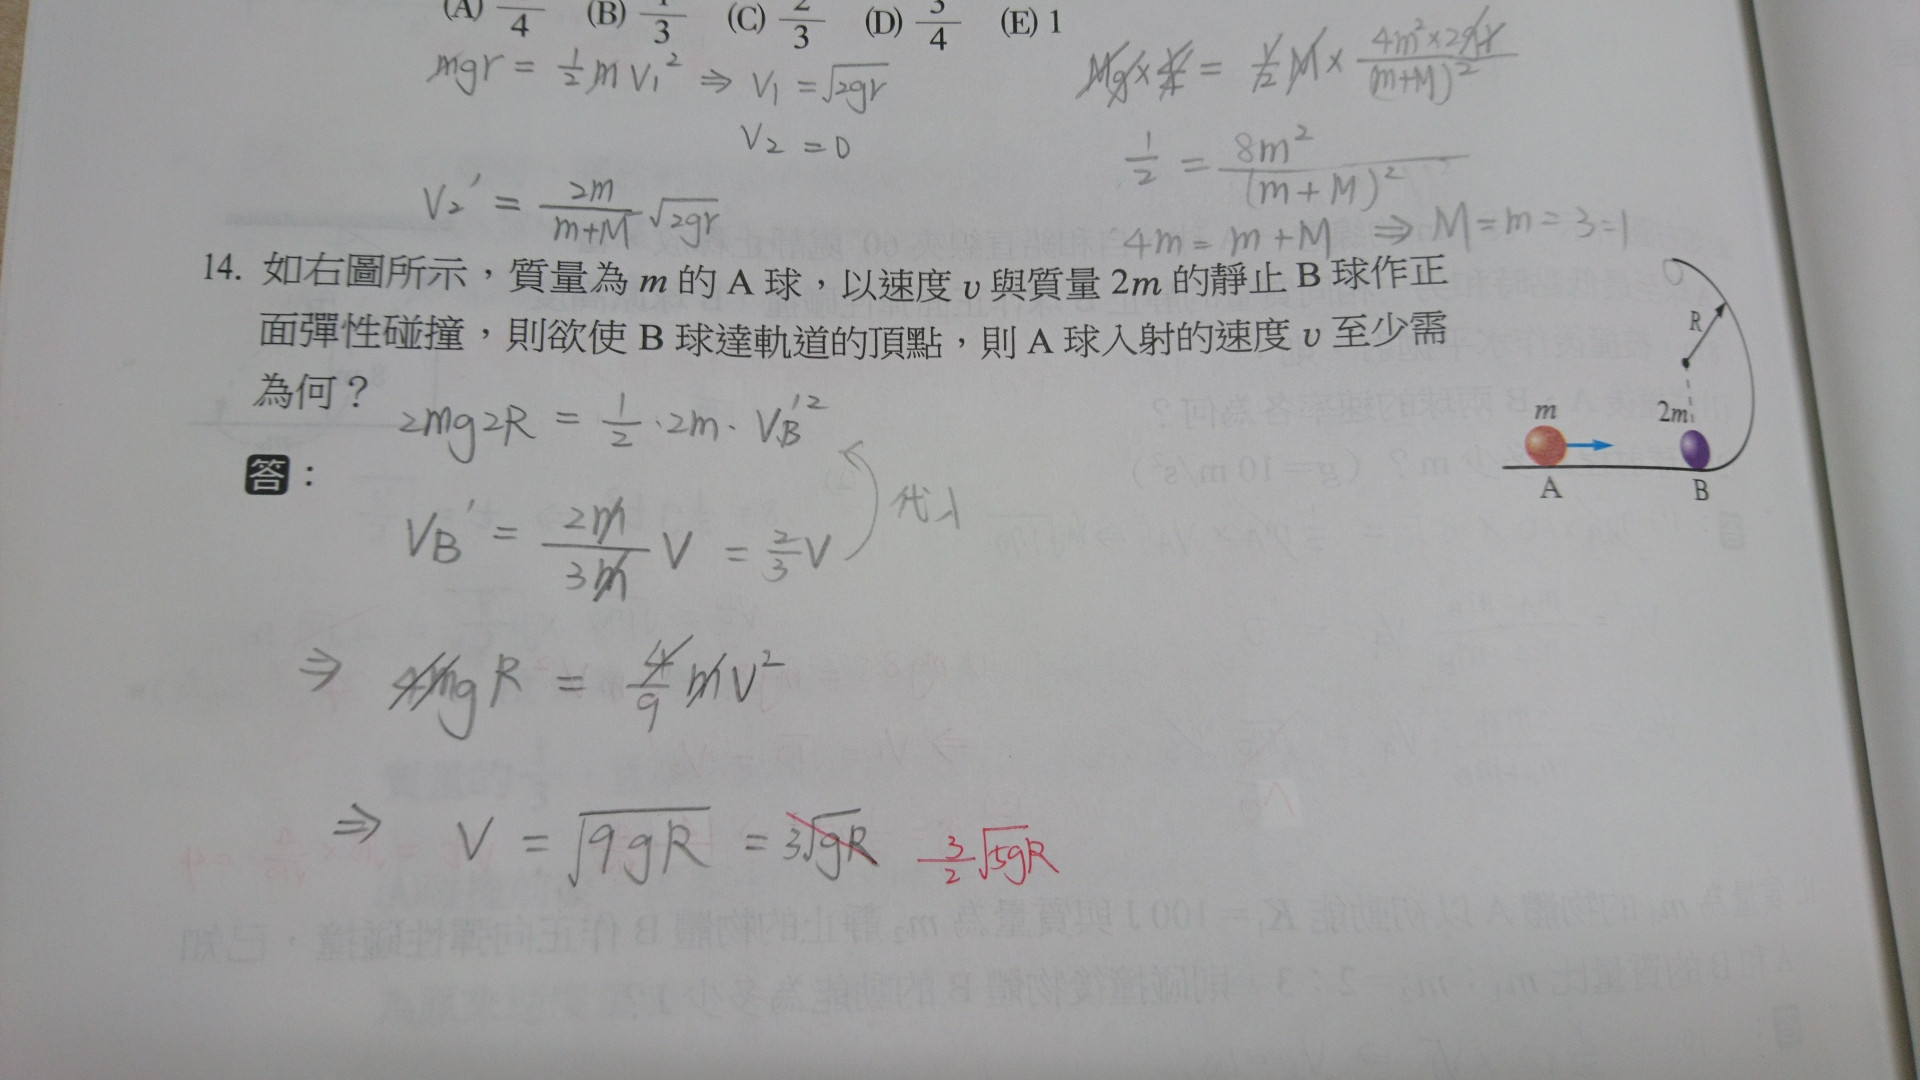 (A) 4 (B) 3 (C) 2/3 (D) 3/4 (E) 1
mgr = 1/2 m V₁² ⇒ V₁ = √2gr
V₂ = 0
V₂' = 2m/(m+M) √2gr
Mg× = 1/2 M × 4m²×2gr/(m+M)²
1/2 = 8m²/(m+M)²
4m = m+M ⇒ M=m=3=1
14. 如右圖所示，質量為 m 的 A 球，以速度 v 與質量 2m 的靜止 B 球作正
面彈性碰撞，則欲使 B 球達軌道的頂點，則 A 球入射的速度 v 至少需
為何？
2mg2R = 1/2 · 2m · V_B'²
答：
V_B' = 2m/3m V = 2/3 V
代入
⇒ 4mgR = 4/9 mV²
⇒ V = √9gR = 3√gR 3/2 √5gR
R
m
2m
A
B